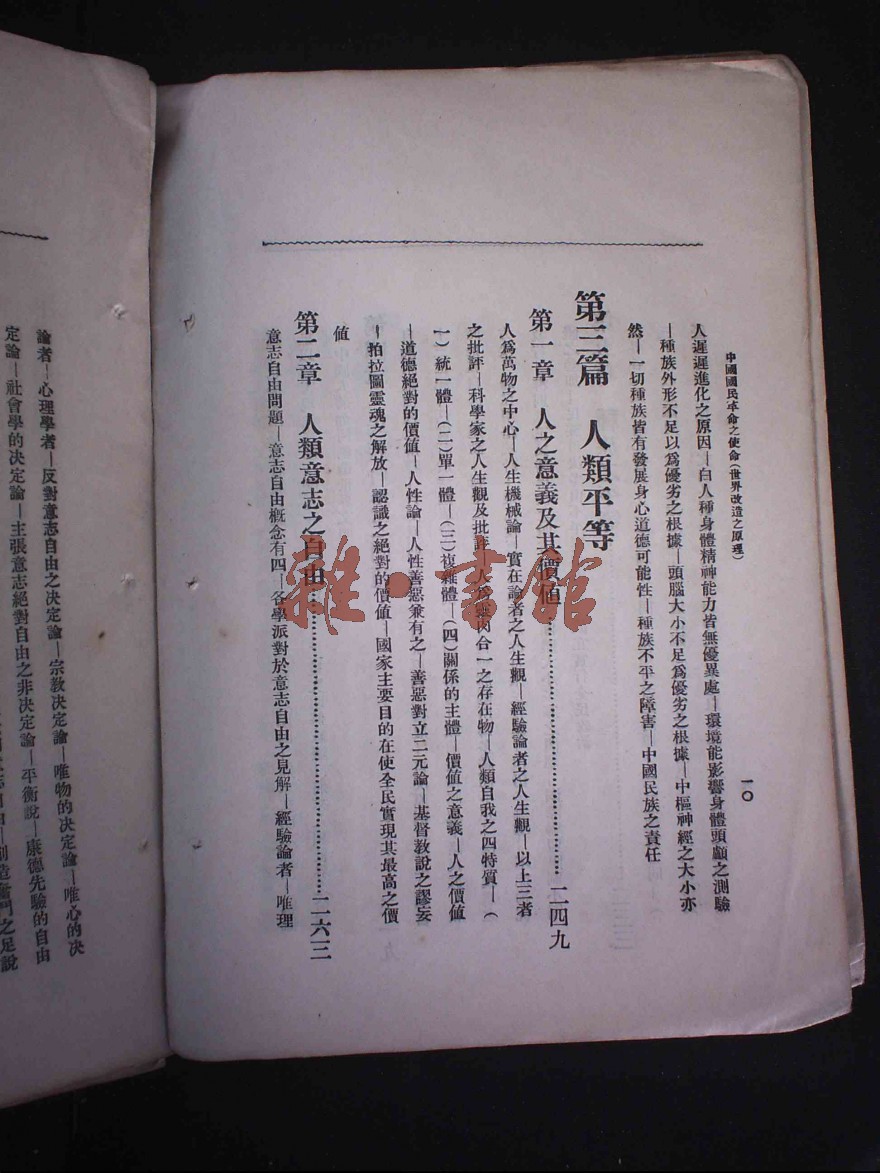 中國國民革命之使命（世界改造之原理）
一〇
人遲遲進化之原因—白人種身體精神能力皆無優異處—環境能影響身體頭顱之測驗
—種族外形不足以爲優劣之根據—頭腦大小不足爲優劣之根據—中樞神經之大小亦
然—一切種族皆有發展身心道德可能性—種族不平之障害—中國民族之責任
第三篇　人類平等
第一章　人之意義及其價値……二四九
人爲萬物之中心—人生機械論—實在論者之人生觀—經驗論者之人生觀—以上三者
之批評—科學家之人生觀及批評—人爲靈肉合一之存在物—人類自我之四特質—（
一）統一體—（二）單一體—（三）複雜體—（四）關係的主體—價値之意義—人之價値
—道德絕對的價値—人性論—人性善惡兼有之—善惡對立二元論—基督教說之謬妄
—拍拉圖靈魂之解放—認識之絕對的價値—國家主要目的在使全民實現其最高之價
値
第二章　人類意志之自由……二六三
意志自由問題—意志自由概念有四—各學派對於意志自由之見解—經驗論者—唯理
論者—心理學者—反對意志自由之決定論—宗教決定論—唯物的決定論—唯心的決
定論—社會學的決定論—主張意志絕對自由之非決定論—平衡說—康德先驗的自由
雜·書館